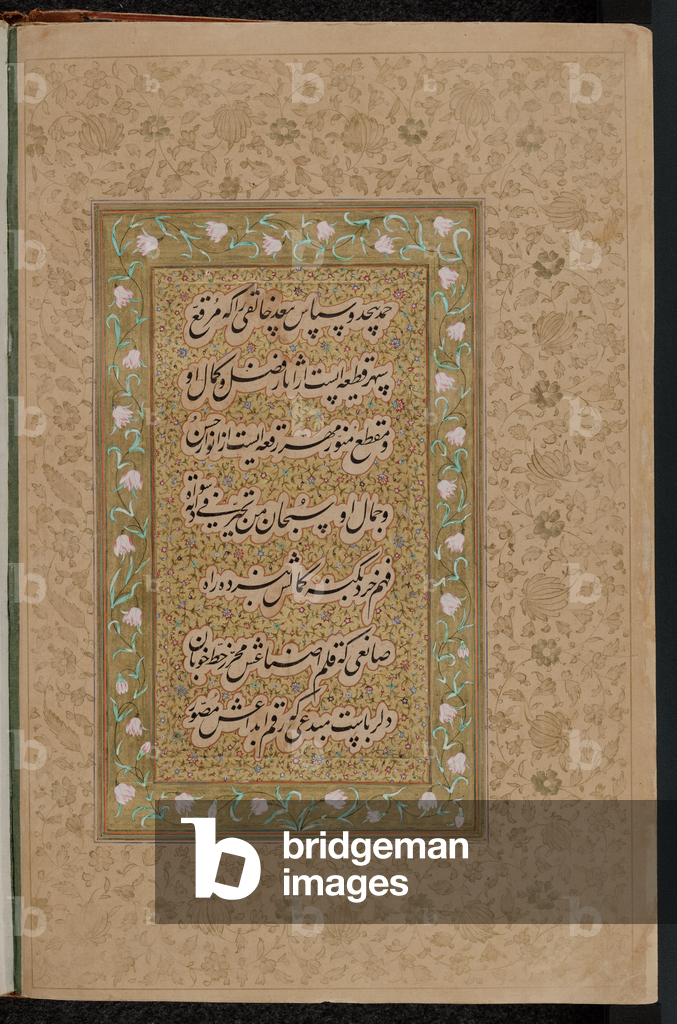 حمد بیحد و سپاس بیعد خالقی را که مرقع
سپهر قطعه ایست از آثار فضل و کمال او
و مقطع منور مهر رقعه ایست از انوار حسن
و جمال او سبحان من تحیر فی ذاته سواه
فهم خرد بکنه کمالش نبرده راه
صانعی که قلم اصطناعش محرر خط خوبان
دلرباست مبدعی که رقم ابداعش مصور
bridgeman
images